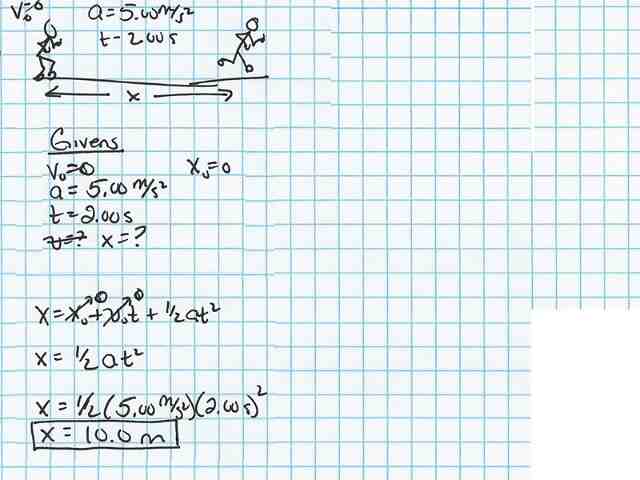 V₀=0 a = 5.00 m/s²
t = 2.00 s
x
Givens
V₀=0 x₀=0
a = 5.00 m/s²
t = 2.00 s
v=? x = ?
x = x₀ + v₀t + ½ at²
0 0
x = ½ at²
x = ½ (5.00 m/s²)(2.00 s)²
x = 10.0 m